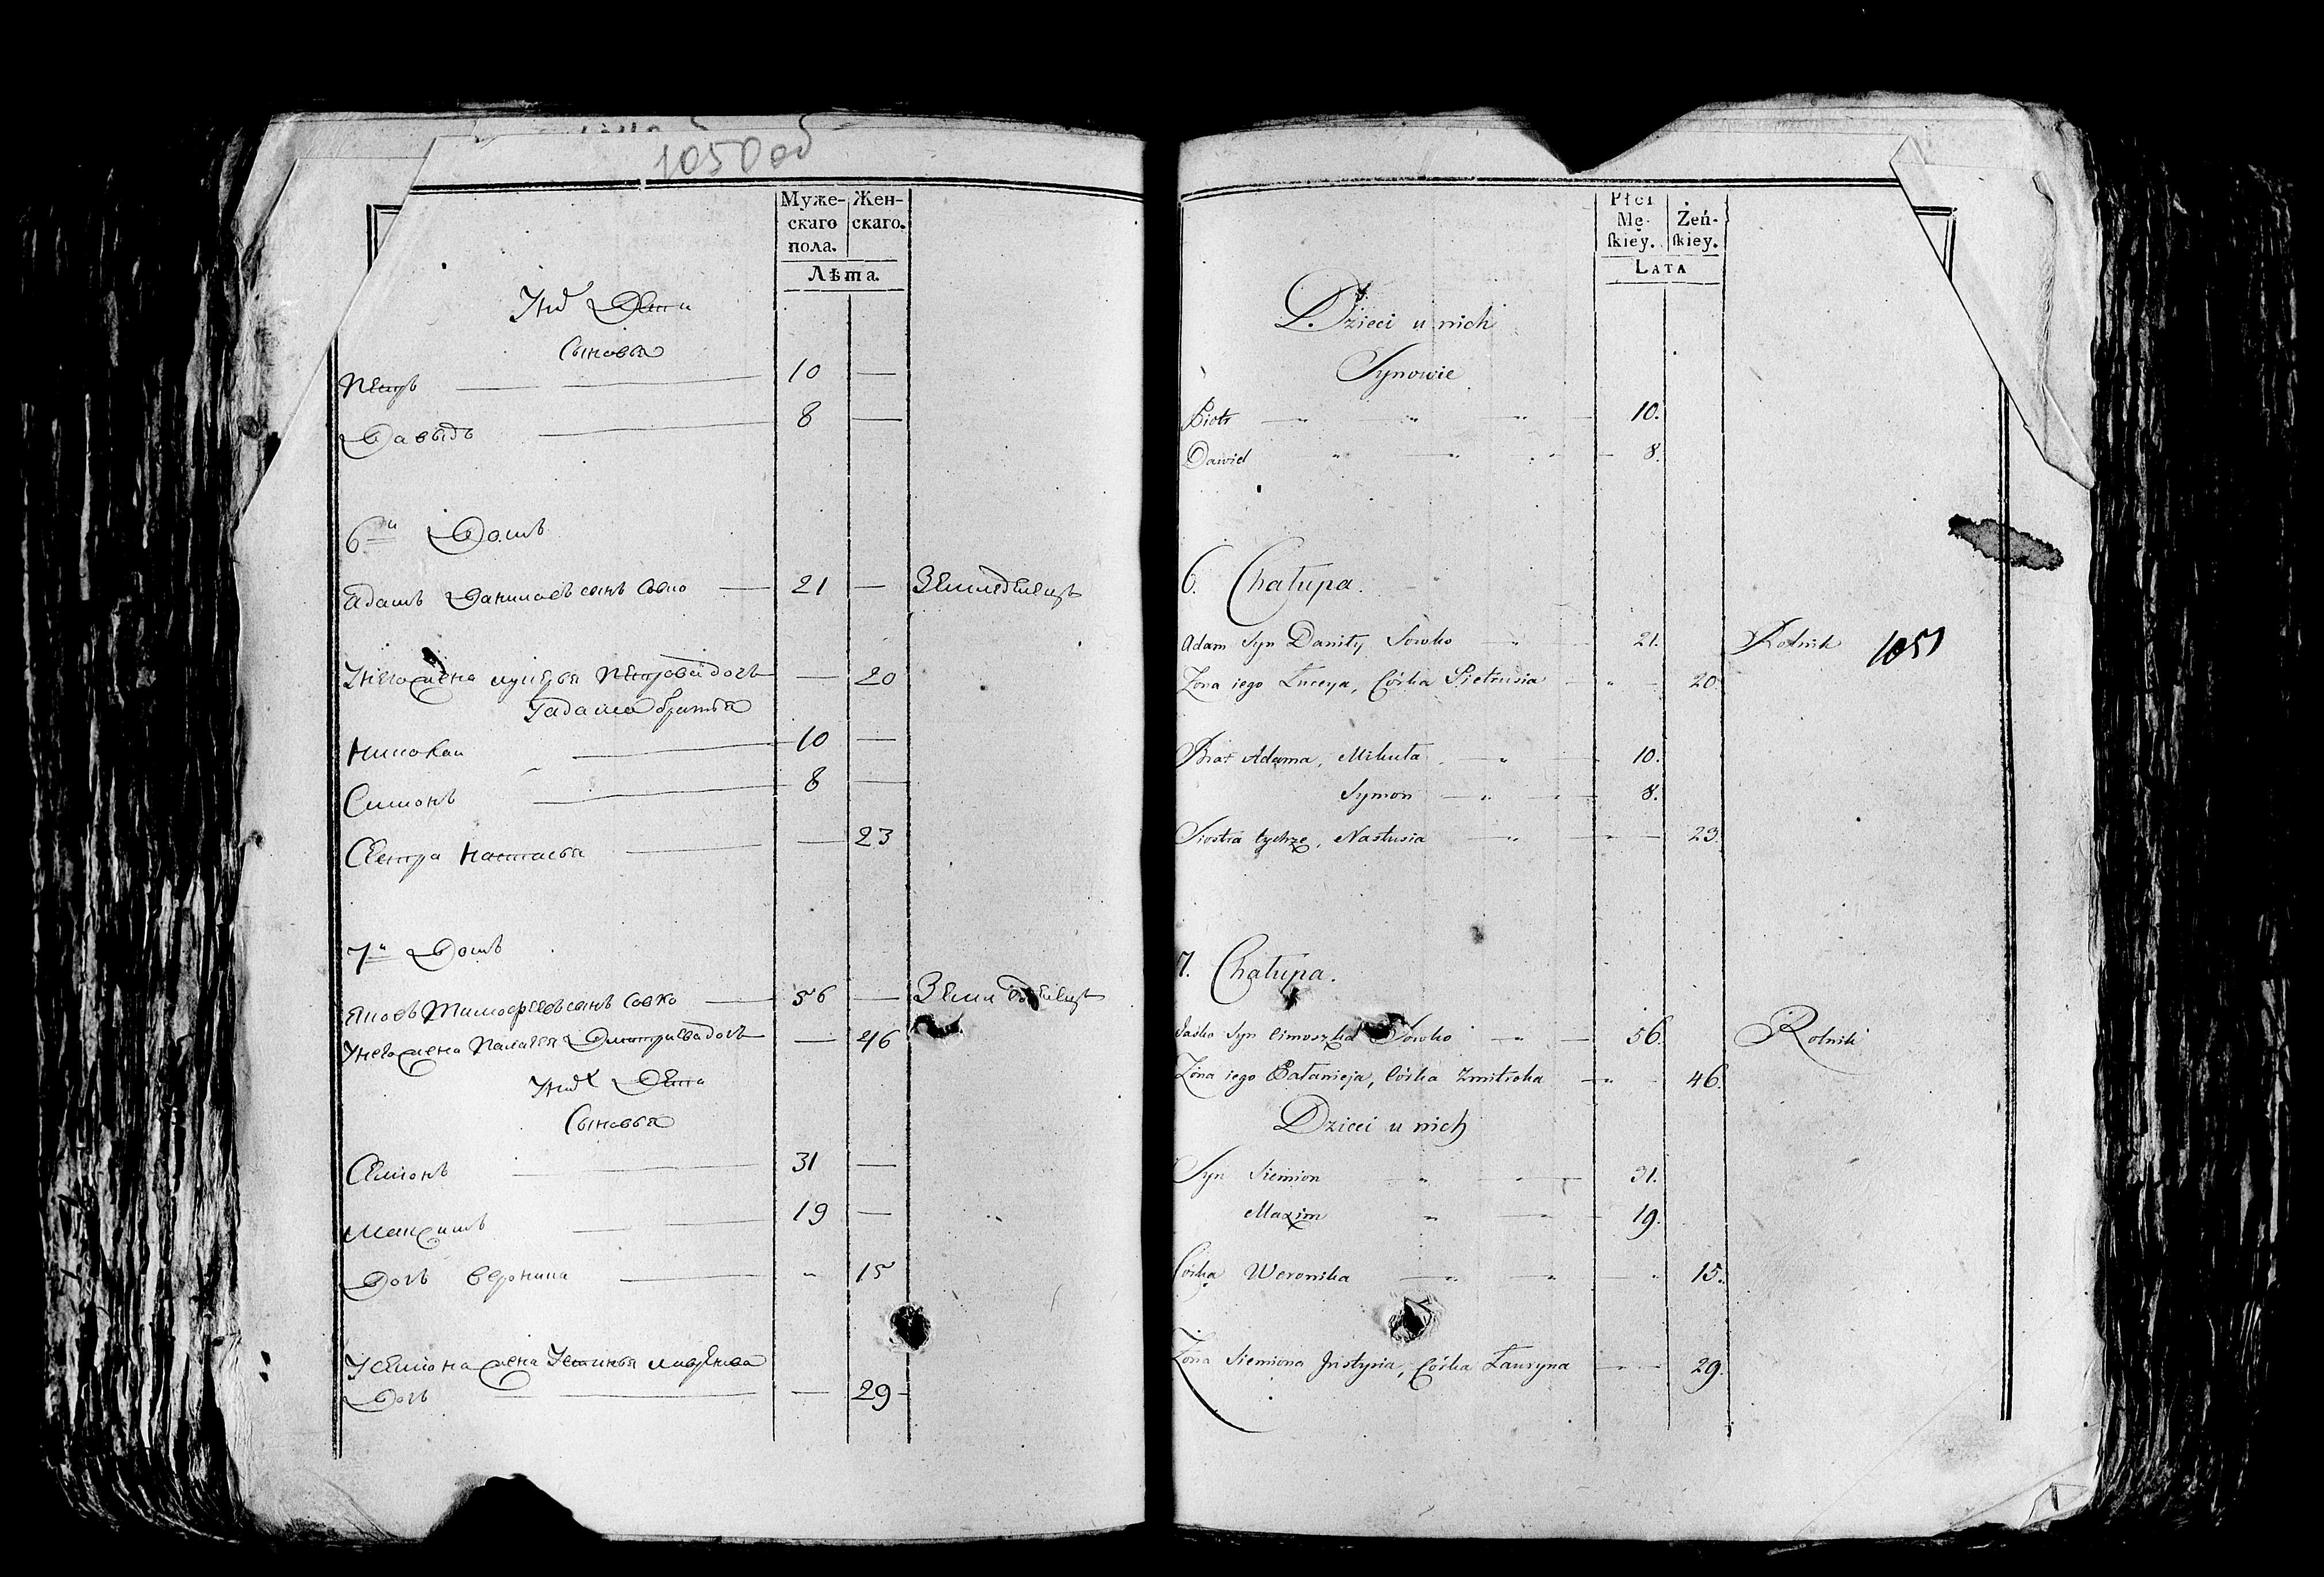 1050 об
Муже-
скаго
пола.
Жен-
скаго.
Лѣта.
У нихъ Дети
Сыновья
Петръ 10 —
Давыдъ 8 —
6й Домъ
Адамъ Даниловъ сынъ Совко — 21 — Земледелецъ
У него жена Луцея Петрова дочь — 20
У адама братья
Николай 10 —
Симонъ 8 —
Сестра Настасья — 23
7й Домъ
Тимофеевъ сынъ Совко — 56 — Земледелецъ
У него жена Палагея Дмитриева дочь — 46
У нихъ Дети
Сыновья
Семионъ 31 —
Максимъ 19 —
Дочь Вероника " 15
У Семиона жена Устинья
Дочь — 29
Płci
Mę-
ſkiey.
Żeń-
ſkiey.
LATA
Dzieci u nich
Synowie
Piotr 10.
Dawid 8.
6. Chałupa.
Adam Syn Daniły Sowko 21. Rolnik
1051
Żona iego Łuceya, Córka Pietrusia 20.
Brat Adama, Mikuła 10.
Symon 8.
Siostra tychże, Nastusia 23.
7. Chałupa.
Jaśko Syn Cimoszka Sowko 56. Rolnik
Żona iego Pałanieja, Córka Zmitroka 46.
Dzieci u nich
Syn Siemion 31.
Maxim 19.
Córka Weronika 15.
Żona Siemiona Justysia, Córka Ławryna 29.